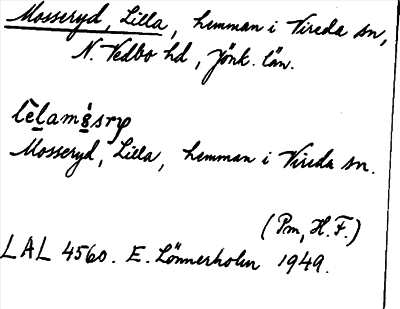 Mosseryd, Lilla, hemman i Vireda sn,
N. Vedbo hd, Jönk. län.
Mosseryd, Lilla, hemman i Vireda sn.
(Pm, H.F.)
LAL 4560. E. Lönnerholm 1949.